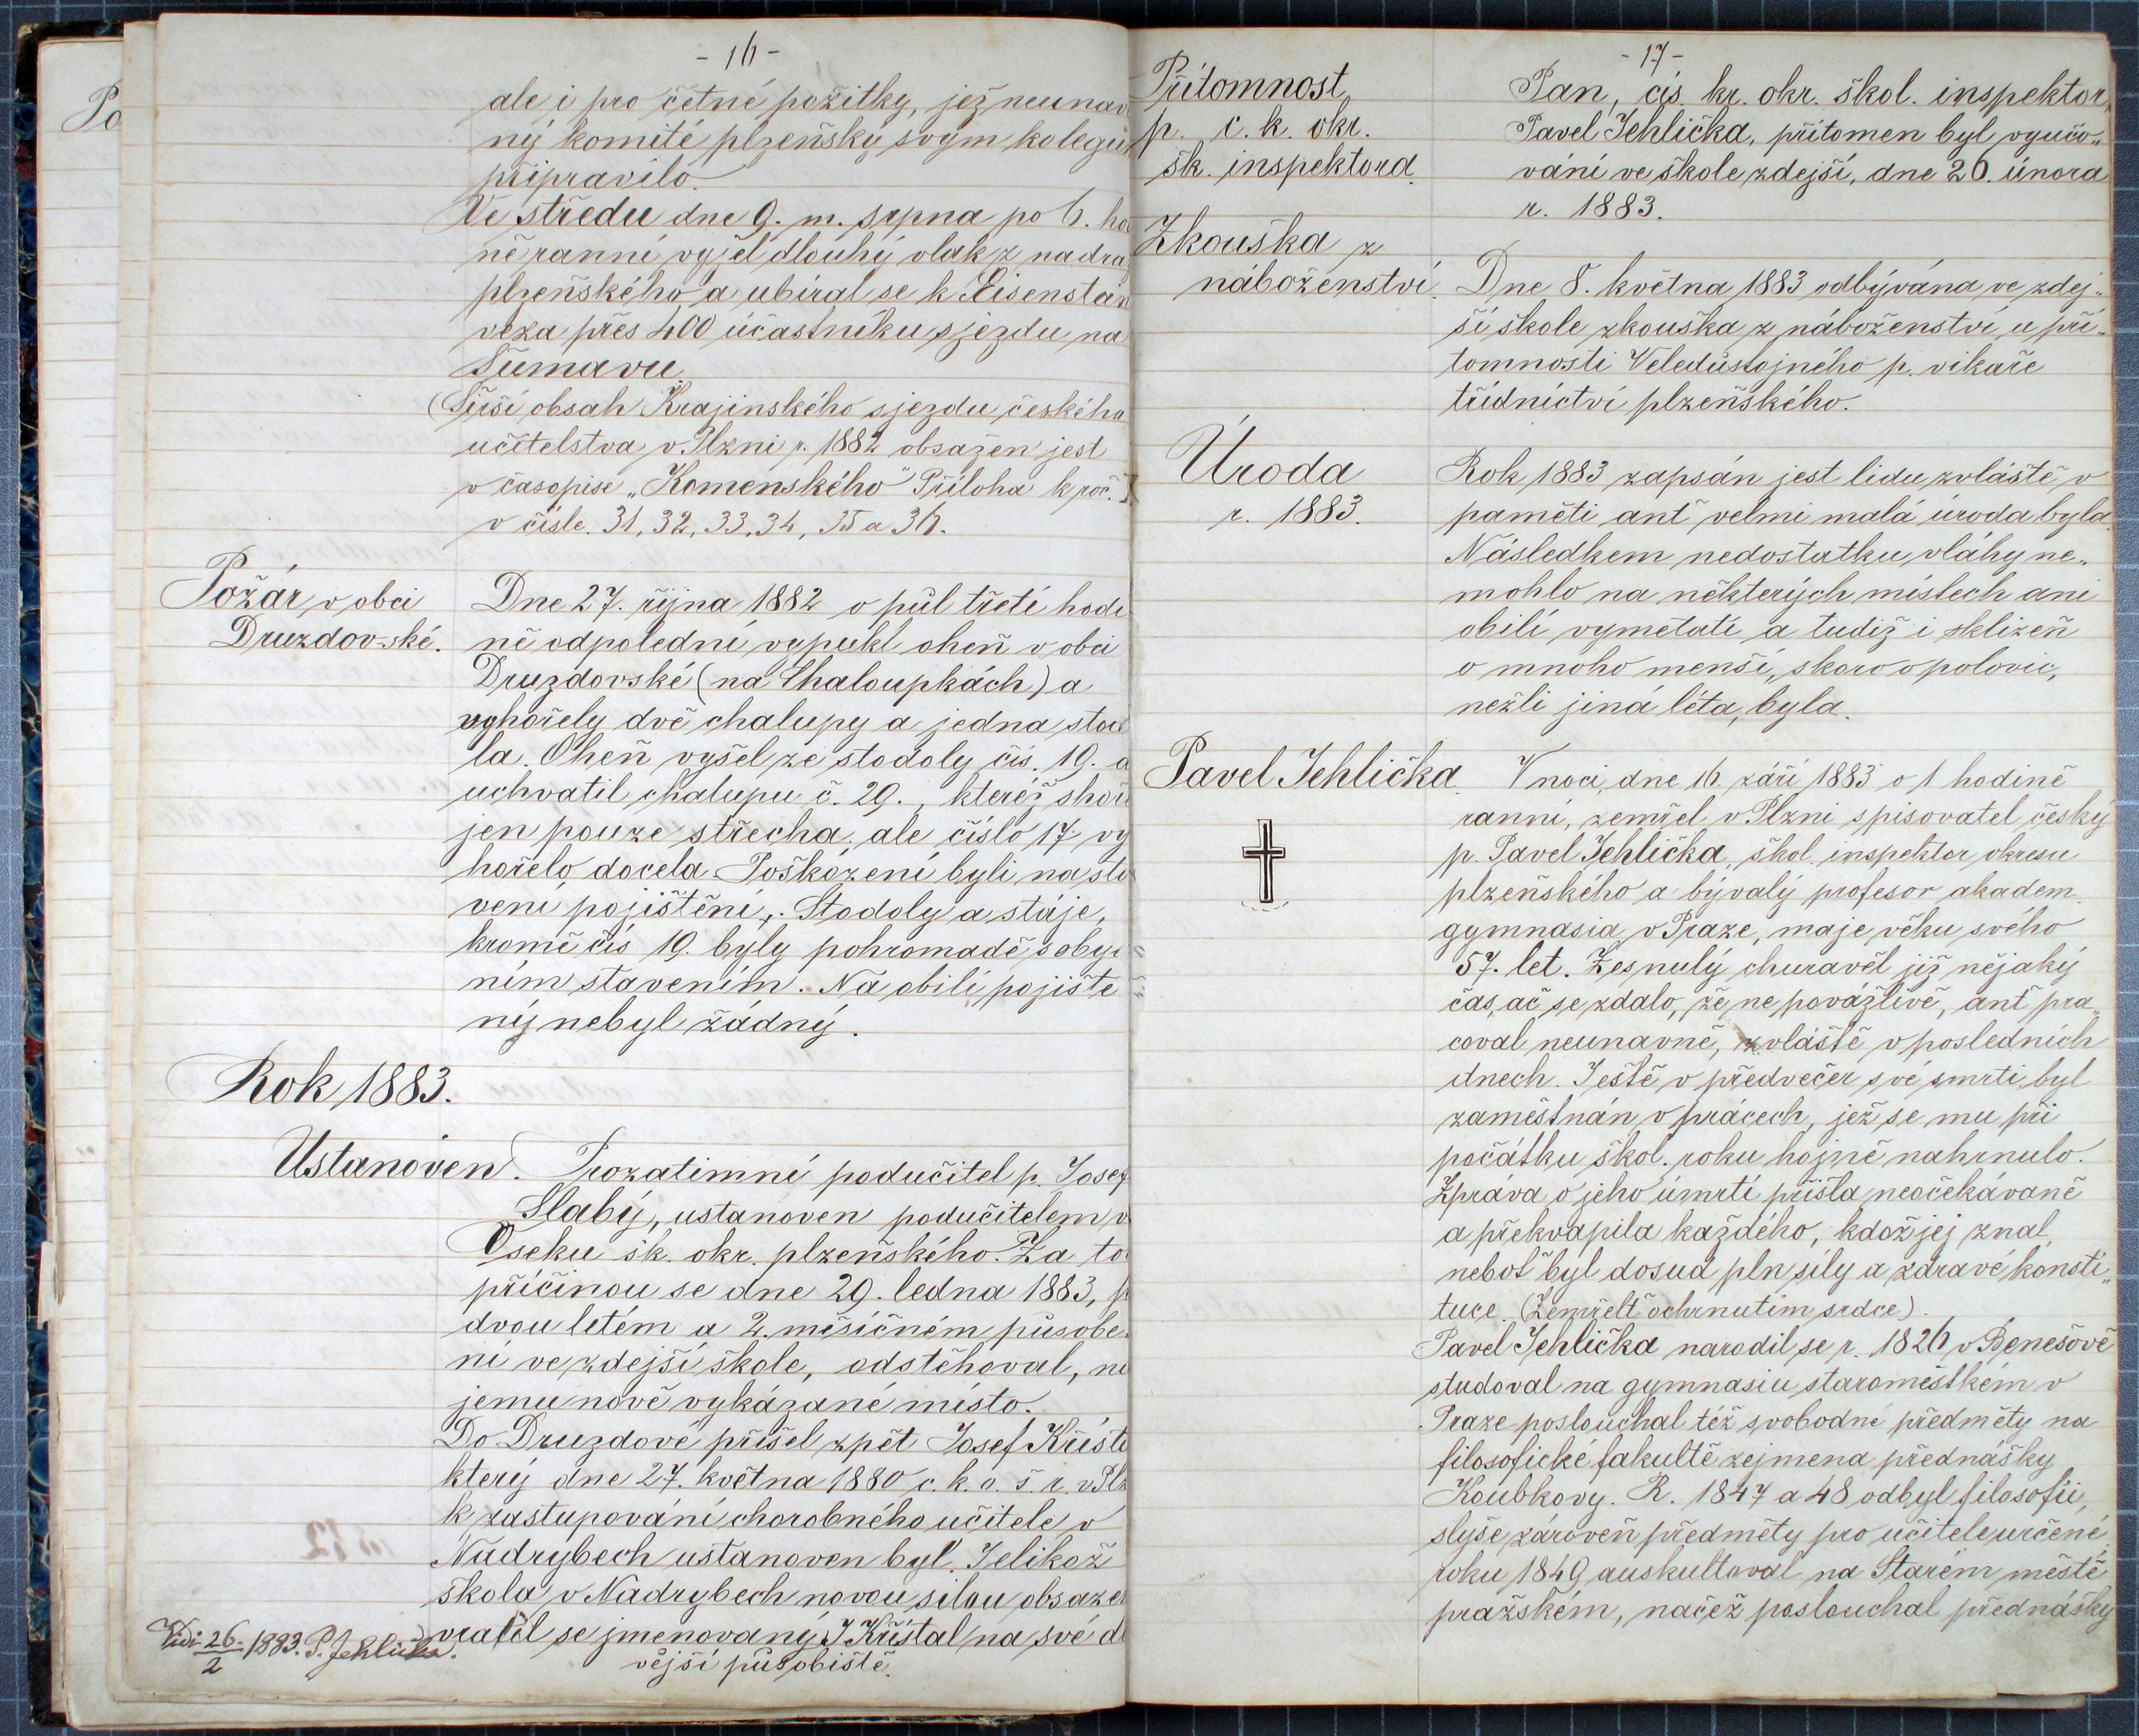 - 16 -
ale i pro četné požitky, jež neunav
ný komité plzeňský svým kolegů
připravilo.
Ve středu dne 9. m. srpna po 6. ho
ně ranní vyjel dlouhý vlak z nadra
plzeňského a ubíral se k Eisenstein
veza přes 400 účastníku sjezdu na
Šumavu.
(Širší obsah Krajinského sjezdu českého
učitelstva v Plzni r. 1882 obsažen jest
v časopise „Komenského" Příloha k roč.
v čísle. 31, 32, 33, 34, 35 a 36.
Požár v obci
Druzdovské.
Dne 27. října 1882 o půl třetí hodi
ně odpolední vypukl oheň v obci
Druzdovské (na Chaloupkách) a
vyhořely dvě chalupy a jedna stod
la. Oheň vyšel ze stodoly čís. 19. a
uchvatil chalupu č. 29., kteréž shoř
jen pouze střecha, ale číslo 17. vy
hořelo docela. Poškození byli na sta
vení pojištění,. Stodoly a stáje,
kromě čís 19. byly pohromadě s oby
ním stavením. Na obilí pojiště
ný nebyl žádný.
Rok 1883.
Ustanoven. Prozatimní podučitel p. Josef
Slabý, ustanoven podučitelem v
Oseku šk. okr. plzeňského. Za to
příčinou se dne 29. ledna 1883, p
dvou letém a 2. měsíčném působe
ní ve zdejší škole, odstěhoval, na
jemu nově vykázané místo.
Do Druzdové přišel zpět Josef Křišt
který dne 27. května 1880 c. k. o. š. r. v Plz
k zastupování chorobného učitele v
Nadrybech ustanoven byl. Jelikož
škola v Nadrybech novou silou obsaze
vratil se jmenovaný J Křištal na své d
vější působiště.
Vidi 26/2 1883. P. Jehlička.
- 17 -
Přítomnost
p. c. k. okr.
šk. inspektora.
Pan, cís. kr. okr. škol. inspektor,
Pavel Jehlička, přítomen byl vyučo„
vání ve škole zdejší, dne 26. února
r. 1883.
Zkouška z
náboženství.
Dne 8. května 1883 odbývána ve zdej„
ší škole zkouška z náboženství u pří„
tomnosti Veledůstojného p. vikaře
třídnictví plzeňského.
Úroda
r. 1883.
Rok 1883 zapsán jest lidu zvláště v
paměti anť velmi malá úroda byla.
Následkem nedostatku vláhy ne„
mohlo na některých místech ani
obilí vymetati a tudiž i sklizeň
o mnoho menší, skoro o polovic,
nežli jiná léta, byla.
Pavel Jehlička.
V noci, dne 16. září 1883 o 1 hodině
ranní, zemřel v Plzni spisovatel český
p. Pavel Jehlička, škol. inspektor okresu
plzeňského a bývalý profesor akadem.
gymnasia v Praze, maje věku svého
57. let. Zesnulý churavěl již nějaký
čas, ač se zdalo, že ne povážlivě, anť pra„
coval neunavně, zvláště v posledních
dnech. Ještě v předvečer své smrti, byl
zaměstnán v prácech, jež se mu při
počátku škol. roku hojně nahrnulo.
Zpráva o jeho úmrtí přišla neočekávaně
a překvapila každého, kdož jej znal,
neboť byl dosud pln síly a zdravé konsti„
tuce. (Zemřelť ochrnutím srdce).
Pavel Jehlička narodil se r. 1826 v Benešově
studoval na gymnasiu staroměstkém v
Praze poslouchal též svobodné předměty na
filosofické fakultě zejmena přednášky
Koubkovy. R. 1847 a 48 odbyl filosofii,
slyše zároveň předměty pro učitele určené,
roku 1849 auskultoval na Starém městě
pražském, načež poslouchal přednášky